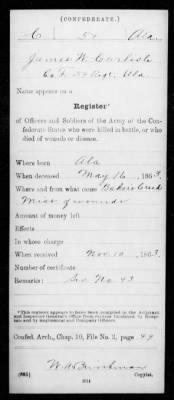 (CONFEDERATE.)
C 54 Ala.
James W. Carlisle
Co. F, 54 Regt. Ala
Name appears on a
Register*
of Officers and Soldiers of the Army of the Con-
federate States who were killed in battle, or who
died of wounds or disease.
Where born Ala
When deceased May 16, 1863.
Where and from what cause Bakers Creek
Miss of wounds
Amount of money left
Effects
In whose charge
When received Nov. 10, 1863.
Number of certificate
Remarks: No. 43
*This register appears to have been compiled in the Adjutant
and Inspector General's Office from reports furnished by Hospi-
tals and by Regimental and Company Officers.
Confed. Arch., Chap. 10, File No. 2, page 49
W. W.
Copyist.